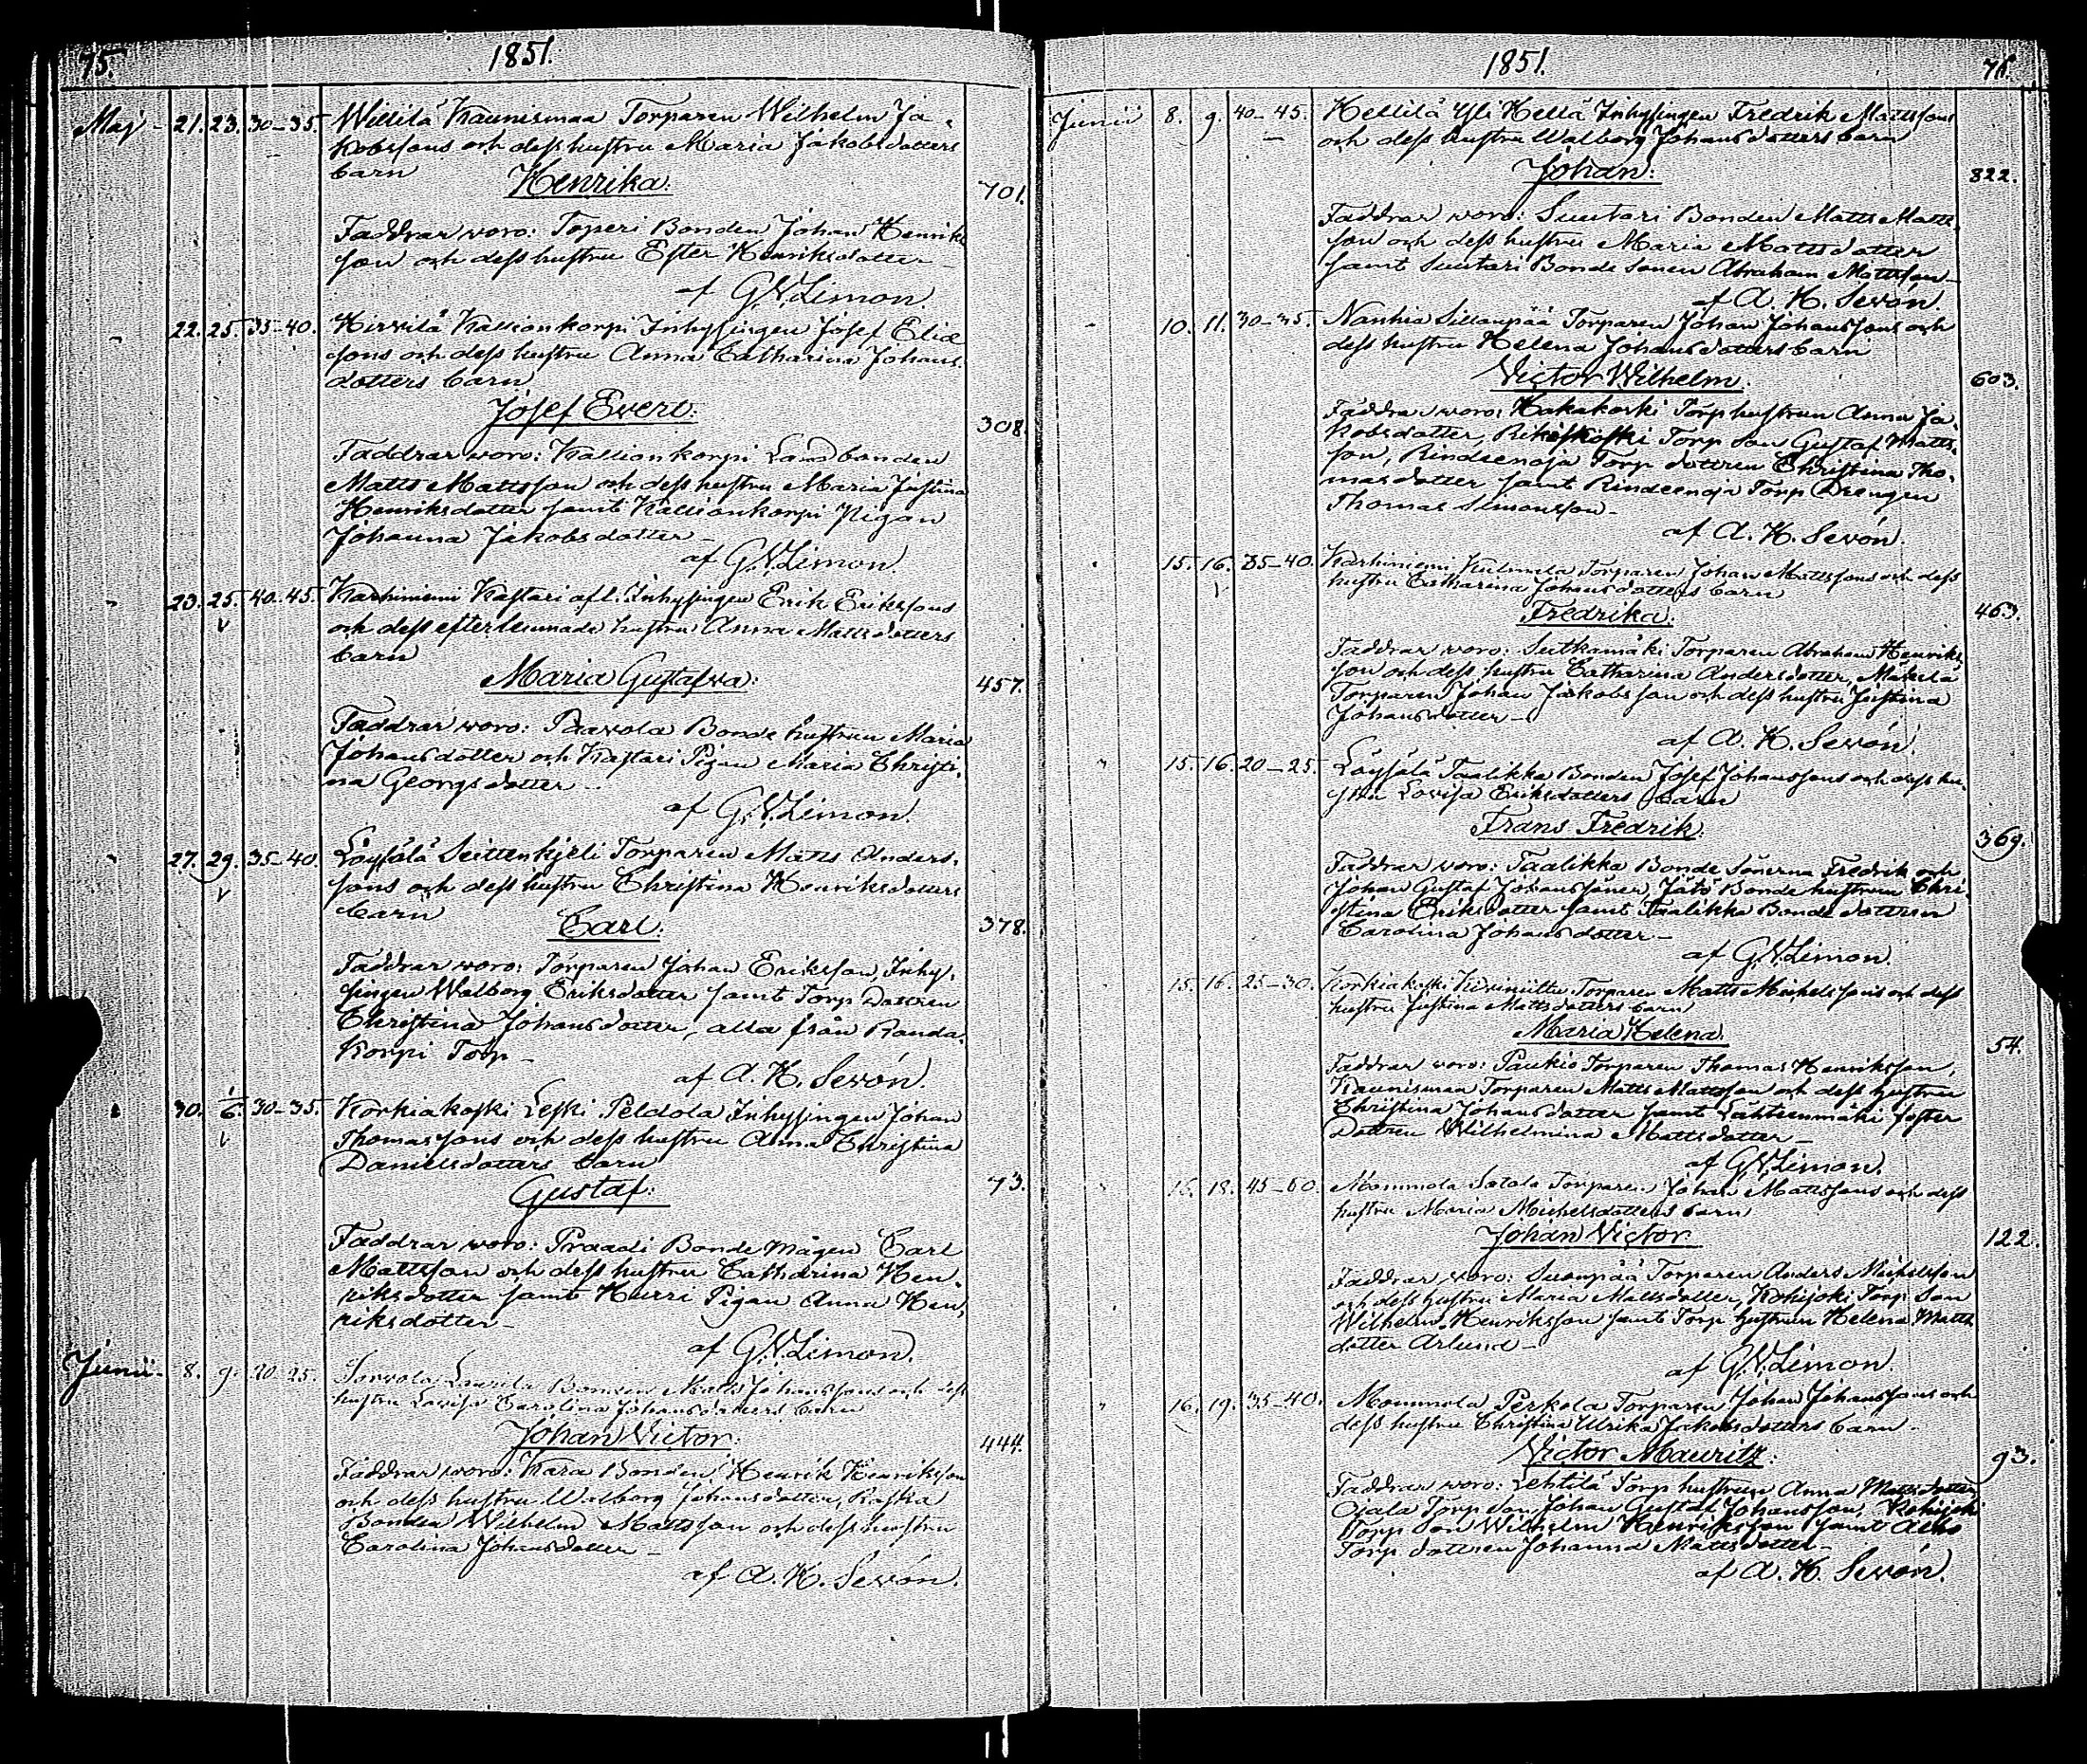 75. 1851.
Maj - 21. 23. 30-35. Willilä Kaunismaa Torparen Wilhelm Ja-
kobssons och dess hustru Maria Jakobsdotters
barn
Henrika: 701.
Faddrar woro: Toperi Bonden Johan Henriks
son och dess hustru Ester Henriksdotter -
af G.N.Limon.
" 22. 25. 35-40. Hirvilä Kallionkorpi Inhysingen Josef Elia
sons och dess hustru Anna Catharina Johans-
dotters barn
Josef Evert. 308.
Faddrar woro: Kallionkorpi Landbonden
Matts Mattsson och dess hustru Maria Justina
Henriksdotter samt Kallionkorpi Pigan
Johanna Jakobsdotter -
af G.N.Limon.
" 23. 25. 40-45. Karhiniemi Kastari afl. Inhysingen Erik Erikssons
och dess efterlemnade hustru Anna Mattsdotters
barn
Maria Gustafva: 457.
Faddrar woro: Paavola Bonde hustrun Maria
Johansdotter och Kastari Pigan Maria Christi-
na Georgsdotter -
af G.N.Limon.
" 27. 29. 35-40. Löysälä Seittenkjeli Torparen Matts Anders-
sons och dess hustru Christina Henriksdotters
barn
Carl: 378.
Faddrar woro: Torparen Johan Eriksson, Inhy-
singen Walborg Eriksdotter samt Torp Dottren
Christina Johansdotter, alla från Randa-
korpi Torp -
af A. H. Sevón.
" 30. 1/6. 30-35. Korkiakoski Leski Peldola Inhysingen Johan
Thomassons och dess hustru Anna Christina
Danielsdotters barn
Gustaf: 73.
Faddrar woro: Praadi Bonde mågen Carl
Mattsson och dess hustru Catharina Hen-
riksdotter samt Hurri Pigan Anna Hen-
riksdotter -
af G.N.Limon.
Junii - 8. 9. 20-25. Laurila Bonden Matts Johanssons och dess
hustru Lovisa Carolina Johansdotters barn
Johan Victor: 444.
Faddrar woro: Kara Bonden Henrik Henriksson
och dess hustru Walborg Johansdotter, Raska
Bonden Wilhelm Mattsson och dess hustru
Carolina Johansdotter -
af A. H. Sevón.
1851. 76.
Junii 8. 9. 40-45. Hellilä Yli Hellä Inhysingen Fredrik Mattssons
och dess hustru Walborg Johansdotters barn
Johan: 822.
Faddrar woro: Suutari Bonden Matts Matts-
son och dess hustru Maria Mattsdotter
samt Suutari Bonde Sonen Abraham Mattsson -
af A. H. Sevón
- 10. 11. 30-35. Nanhia Sillanpää Torparen Johan Johanssons och
dess hustru Helena Johansdotters barn
Victor Wilhelm. 603.
Faddrar woro: Hakakoski Torp hustrun Anna Ja-
kobsdotter, Torp Son Gustaf Matts-
son, Rindeenoja Torp dottren Christina Tho-
masdotter samt Rindeenoja Torp Drengen
Thomas Simonsson -
af A. H. Sevón.
" 15. 16. 35-40. Karhiniemi Kulmala Torparen Johan Mattssons och dess
hustru Catharina Johansdotters barn
Fredrika: 463.
Faddrar woro: Sutkamäki Torparen Abraham Henriks-
son och dess hustru Catharina Andersdotter, Mäkelä
Torparen Johan Jakobsson och dess hustru Justina
Johansdotter -
af A. H. Sevón.
" 15. 16. 20-25. Löysälä Taalikka Bonden Josef Johanssons och dess hu-
stru Lovisa Eriksdotters barn
Frans Fredrik: 369.
Faddrar woro: Taalikka Bonde Sönerna Fredrik och
Johan Gustaf Johanssöner, Jätö Bonde hustrun Chri-
stina Eriksdotter samt Taalikka Bonde dottren
Carolina Johansdotter -
af G.N.Limon.
15. 16. 25-30. Korkiakoski Torparen Matts Michelssons och dess
hustru Justina Mattsdotters barn
Maria Helena. 54.
Faddrar woro: Paukio Torparen Thomas Henriksson,
Kaunismaa Torparen Matts Mattsson och dess hustru
Christina Johansdotter samt Lähteenmäki foster
Dottren Wilhelmina Mattsdotter -
af G.N.Limon.
" 16. 18. 45-50. Mommola Satola Torparen Johan Mattssons och dess
hustru Maria Michelsdotters barn
Johan Victor 122.
Faddrar woro: Suonpää Torparen Anders Michelsson
och dess hustru Maria Mattsdotter, Kohijoki Torp Son
Wilhelm Henriksson samt Torp hustrun Helena Matts
dotter Arlund -
af G.N.Limon.
" 16. 19. 35-40. Mommola Perkola Torparen Johan Johanssons och
dess hustru Christina Ulrika Jakobsdotters barn -
Victor Mauritz: 93.
Faddrar woro: Lehtilä Torp hustrun Anna Mattsdotter,
Ojala Torp Son Johan Gustaf Johansson, Kohijoki
Torp Son Wilhelm Henriksson samt Alho
Torp dottren Johanna Mattsdotter -
af A. H. Sevón.